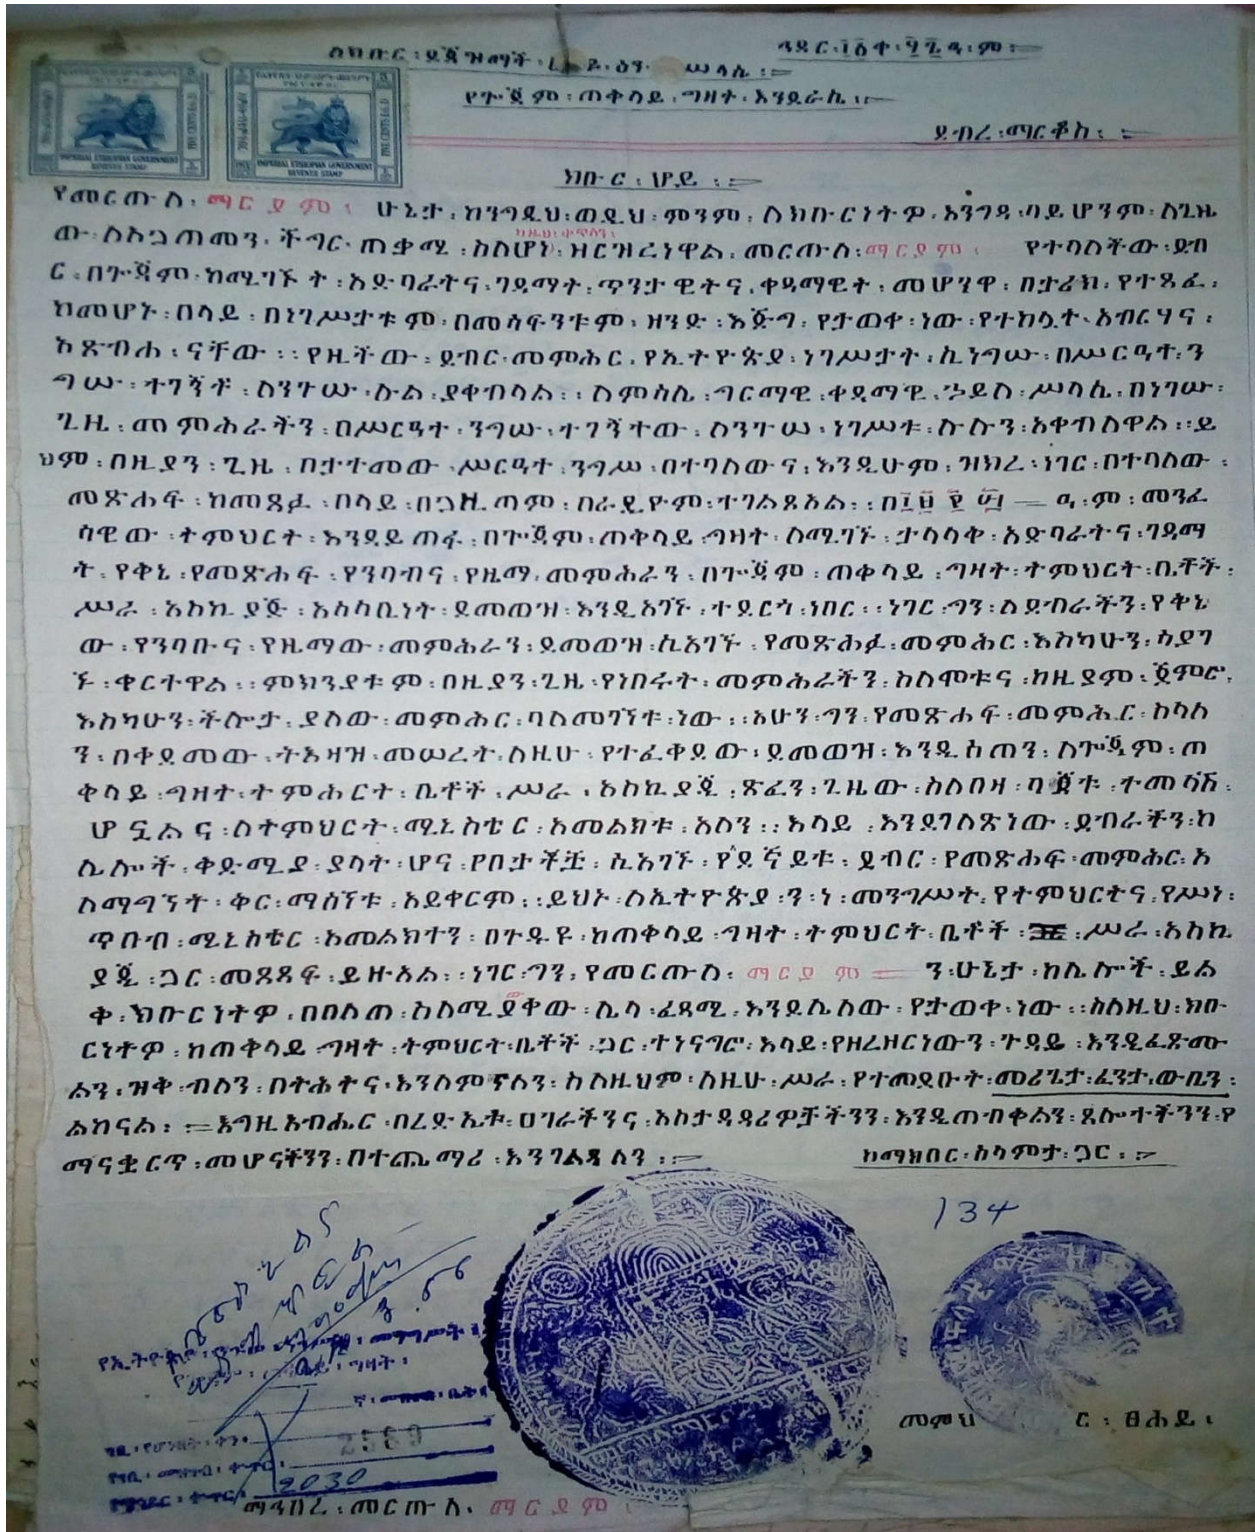 ለክቡር ፡ ደጃዝማች ፡ ሥላሴ ፡
የጐጃም ፡ ጠቅላይ ፡ ግዛት ፡ እንደራሴ ፡
ደብረ ፡ ማርቆስ ፡
IMPERIAL ETHIOPIAN GOVERNMENT
REVENUE STAMP
IMPERIAL ETHIOPIAN GOVERNMENT
REVENUE STAMP
ክቡር ፡ ሆይ ፡
የመርጡለ ፡ ማርያም ፡ ሁኔታ ፡ ከንግዲህ ፡ ወዲህ ፡ ምንም ፡ ለክቡርነትዎ ፡ እንግዳ ፡ ባይሆንም ፡ ለጊዜ
ው ፡ ስለአጋጠመን ፡ ችግር ፡ ጠቃሚ ፡ ስለሆነ ፡ ዝርዝረነዋል ፡ መርጡለ ፡ ማርያም ፡ የተባለችው ፡ ደብ
ር ፡ በጐጃም ፡ ከሚገኙት ፡ አድባራትና ፡ ገዳማት ፡ ጥንታዊትና ፡ ቀዳማዊት ፡ መሆንዋ ፡ በታሪክ ፡ የተጻፈ ፡
ከመሆኑ ፡ በላይ ፡ በነገሥታቱም ፡ በመሳፍንቱም ፡ ዘንድ ፡ እጅግ ፡ የታወቀ ፡ ነው ፡ የተከሏት ፡ አብርሃና ፡
አጽብሐ ፡ ናቸው ፡፡ የዚችው ፡ ደብር ፡ መምሕር ፡ የኢትዮጵያ ፡ ነገሥታት ፡ ሲነግሡ ፡ በሥርዓተ ፡ ን
ግሡ ፡ ተገኝቶ ፡ ስንጉሡ ፡ ሉል ፡ ያቀብላል ፡፡ ለምሳሌ ፡ ግርማዊ ፡ ቀዳማዊ ፡ ኃይለ ፡ ሥላሴ ፡ በነገሡ ፡
ጊዜ ፡ መምሕራችን ፡ በሥርዓተ ፡ ንግሡ ፡ ተገኝተው ፡ ለንጉሡ ፡ ነገሥቱ ፡ ሉሉን ፡ አቀብለዋል ፡፡ ይ
ህም ፡ በዚያን ፡ ጊዜ ፡ በታተመው ፡ ሥርዓተ ፡ ንግሥ ፡ በተባለውና ፡ እንዲሁም ፡ ዝክረ ፡ ነገር ፡ በተባለው ፡
መጽሐፍ ፡ ከመጻፉ ፡ በላይ ፡ በጋዜጣም ፡ በራዲዮም ፡ ተገልጾአል ፡፡ ዓ ፡ ም ፡ መንፈ
ሳዊው ፡ ትምህርት ፡ እንዳይጠፋ ፡ በጐጃም ፡ ጠቅላይ ፡ ግዛት ፡ ለሚገኙ ፡ ታላላቅ ፡ አድባራትና ፡ ገዳማ
ት ፡ የቅኔ ፡ የመጽሐፍ ፡ የንባብና ፡ የዜማ ፡ መምሕራን ፡ በጐጃም ፡ ጠቅላይ ፡ ግዛት ፡ ትምህርት ፡ ቤቶች ፡
ሥራ ፡ አስኪያጅ ፡ አሳሳቢነት ፡ ደመወዝ ፡ እንዲአገኙ ፡ ተደርጎ ፡ ነበር ፡፡ ነገር ፡ ግን ፡ ለደብራችን ፡ የቅኔ
ው ፡ የንባቡና ፡ የዜማው ፡ መምሕራን ፡ ደመወዝ ፡ ሲአገኙ ፡ የመጽሐፉ ፡ መምሕር ፡ እስካሁን ፡ ሳያገ
ኙ ፡ ቀርተዋል ፡፡ ምክንያቱም ፡ በዚያን ፡ ጊዜ ፡ የነበሩት ፡ መምሕራችን ፡ ስለሞቱና ፡ ከዚያም ፡ ጀምሮ ፡
እስካሁን ፡ ችሎታ ፡ ያለው ፡ መምሕር ፡ ባለመገኘቱ ፡ ነው ፡፡ አሁን ፡ ግን ፡ የመጽሐፍ ፡ መምሕር ፡ ስላለ
ን ፡ በቀደመው ፡ ትእዛዝ ፡ መሠረት ፡ ለዚሁ ፡ የተፈቀደው ፡ ደመወዝ ፡ እንዲሰጠን ፡ ለጐጃም ፡ ጠ
ቅላይ ፡ ግዛት ፡ ትምሕርት ፡ ቤቶች ፡ ሥራ ፡ አስኪያጁ ፡ ጽፈን ፡ ጊዜው ፡ ስለበዛ ፡ ባጀቱ ፡ ተመላሽ ፡
ሆኗልና ፡ ለትምህርት ፡ ሚኒስቴር ፡ አመልክቱ ፡ አለን ፡፡ እላይ ፡ እንደገለጽነው ፡ ደብራችን ፡ ከ
ሌሎች ፡ ቅድሚያ ፡ ያላት ፡ ሆና ፡ የበታቾቿ ፡ ሲአገኙ ፡ ደብር ፡ የመጽሐፍ ፡ መምሕር ፡ አ
ለማግኘት ፡ ቅር ፡ ማሰኘቱ ፡ አይቀርም ፡፡ ይህኑ ፡ ለኢትዮጵያ ፡ ን ፡ ነ ፡ መንግሥት ፡ የትምህርትና ፡ የሥነ ፡
ጥበብ ፡ ሚኒስቴር ፡ አመልክተን ፡ በጉዳዩ ፡ ከጠቅላይ ፡ ግዛት ፡ ትምህርት ፡ ቤቶች ፡ ሥራ ፡ አስኪ
ያጁ ፡ ጋር ፡ መጻጻፍ ፡ ይዘአል ፡፡ ነገር ፡ ግን ፡ የመርጡለ ፡ ማርያም ን ፡ ሁኔታ ፡ ከሌሎች ፡ ይል
ቅ ፡ ክቡርነትዎ ፡ በበለጠ ፡ ስለሚያቀው ፡ ሌላ ፡ ፈጻሚ ፡ እንደሌለው ፡ የታወቀ ፡ ነው ፡፡ ስለዚህ ፡ ክቡ
ርነትዎ ፡ ከጠቅላይ ፡ ግዛት ፡ ትምህርት ፡ ቤቶች ፡ ጋር ፡ ተነጋግሮ ፡ እላይ ፡ የዘረዘርነውን ፡ ጉዳይ ፡ እንዲፈጽሙ
ልን ፡ ዝቅ ፡ ብለን ፡ በትሕትና ፡ እንለምናለን ፡ ስለዚህም ፡ ለዚሁ ፡ ሥራ ፡ የተመደቡት ፡ መሪጌታ ፡ ፈንታ ፡ ውቤን ፡
ልከናል ፡ እግዚአብሔር ፡ በረድኤቱ ፡ ዐገራችንና ፡ አስታዳዳሪዎቻችንን ፡ እንዲጠብቅልን ፡ ጸሎተችንን ፡ የ
ማናቋርጥ ፡ መሆናችንን ፡ በተጨማሪ ፡ እንገልጻለን ፡ ከማክበር ፡ ሰላምታ ፡ ጋር ፡
134
2589
2030
ፀሐይ ፡
ማኅበረ ፡ መርጡለ ፡ ማርያም ፡